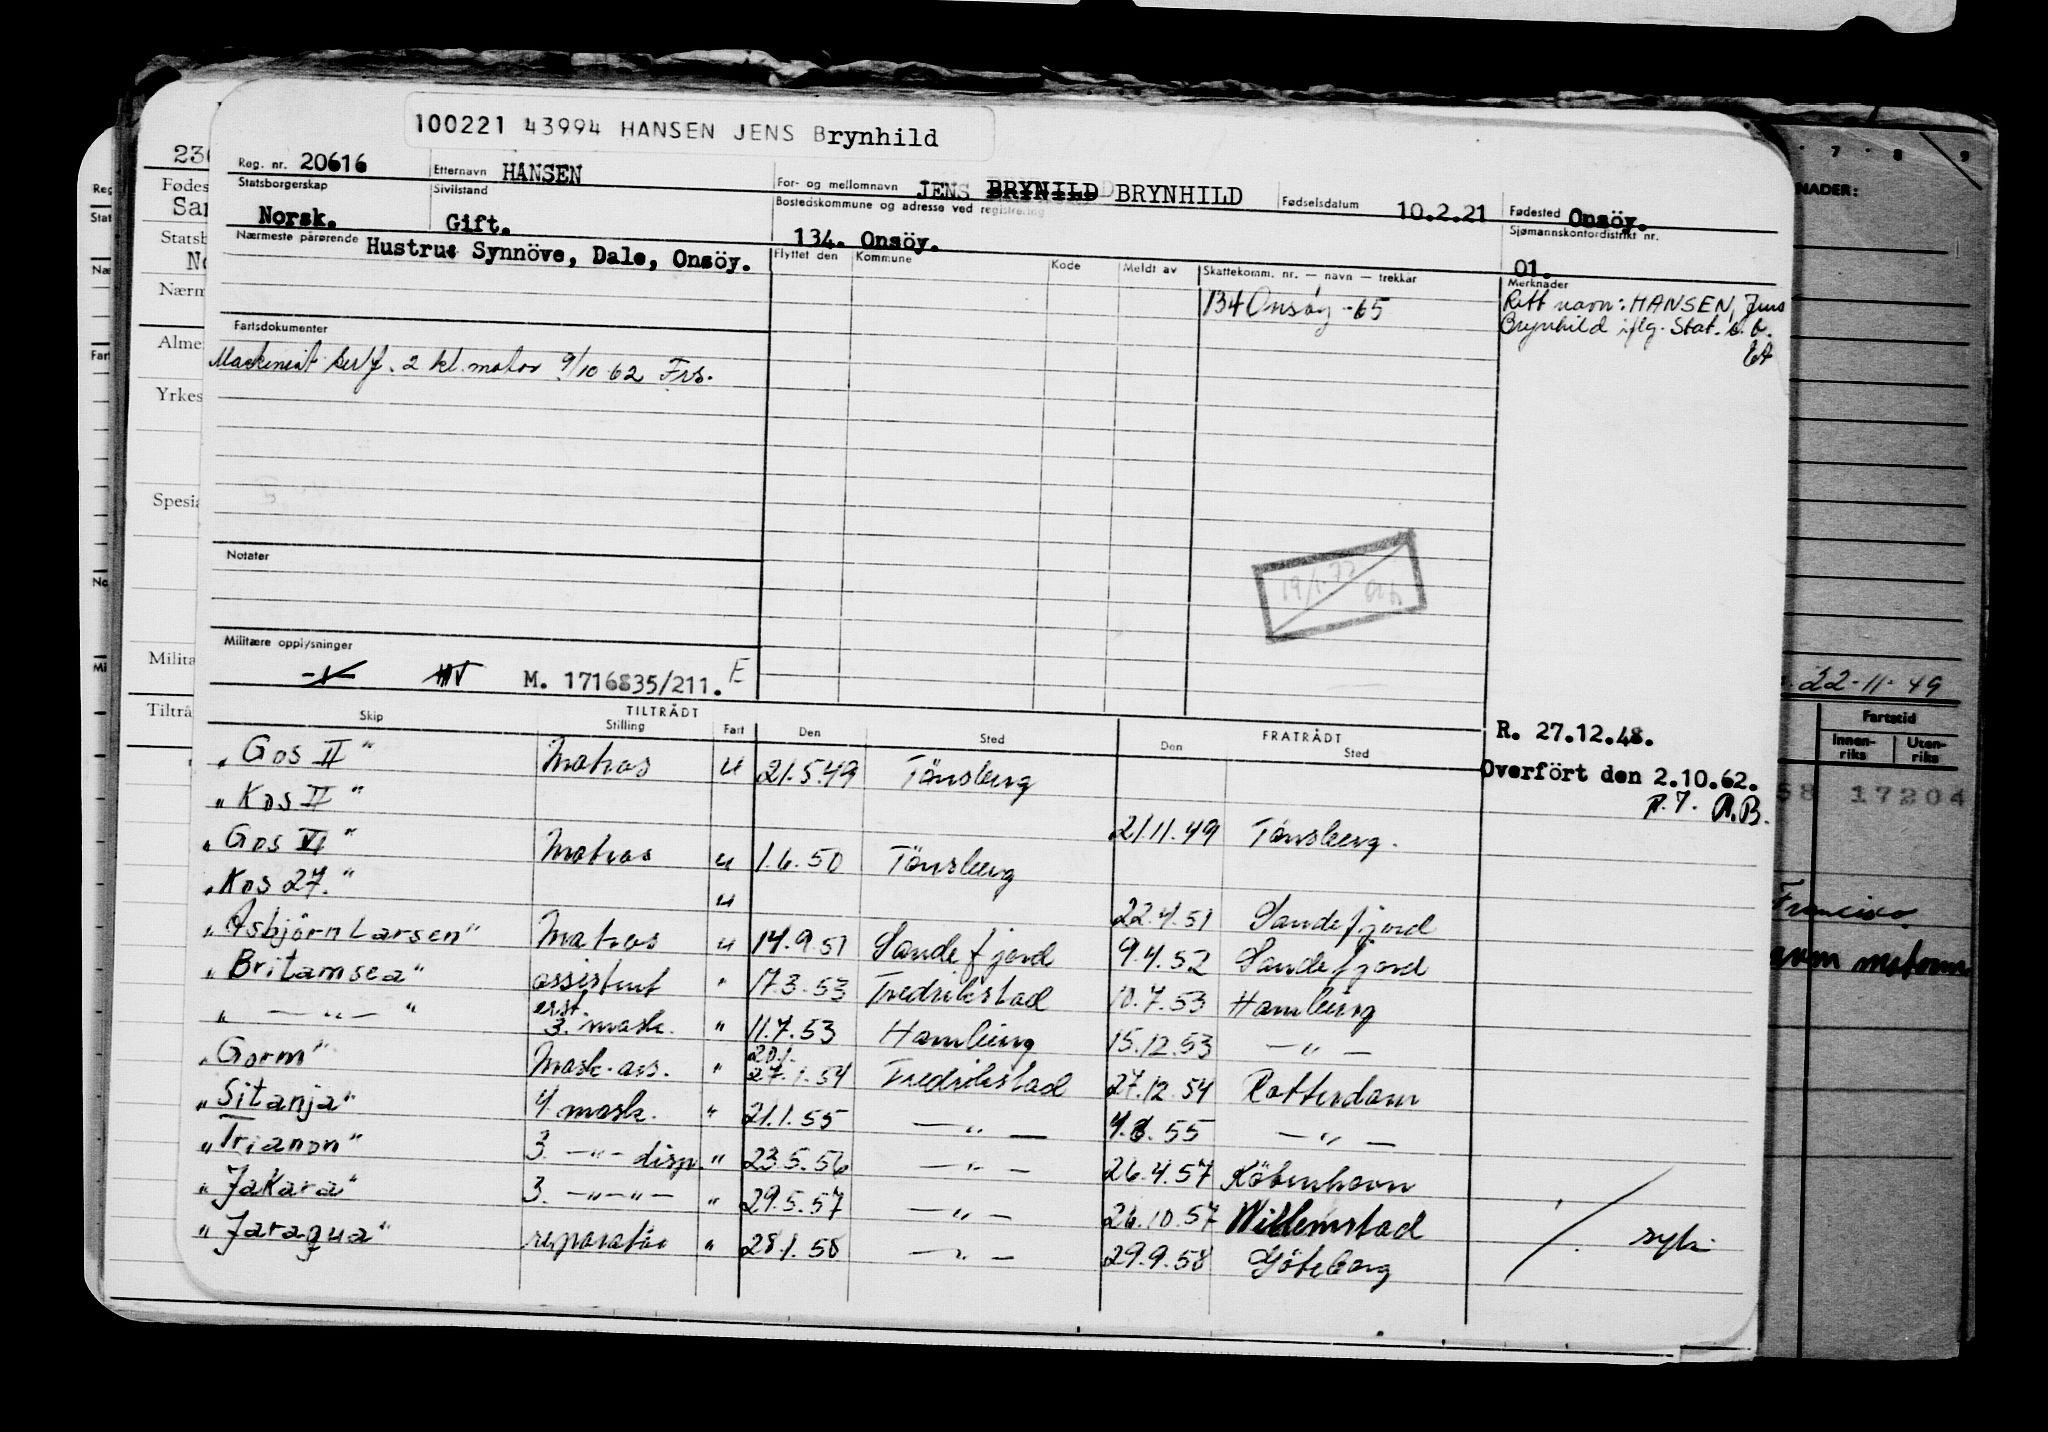 100221 43994 HANSEN JENS Brynhild
Reg. nr. 20616 Etternavn HANSEN For- og mellomnavn JENS BRYNILD BRYNHILD Fødselsdatum 10.2.21 Fødested Onsöy.
Statsborgerskap Norsk. Sivilstand Gift. Bostedskommune og adresse ved registrering 134. Onsöy. Sjømannskontordistrikt nr. 01.
Nærmeste pårørende Hustru: Synnöve, Dale, Onsöy.
Flyttet den Kommune Kode Meldt av Skattekomm. nr. — navn — trekkår Merknader
134 Onsøy -65
Rett navn: HANSEN, Jens
Brynhild iflg. Stat. s. b.
Fartsdokumenter
Maskinist serf. 2 kl. motor 9/10 62 Frs.
Notater
19/1.72
Militære opplysninger
M. 1716835/211. E
TILTRÅDT FRATRÅDT
Skip Stilling Fart Den Sted Den Sted
R. 27.12.48.
Overfört den 2.10.62.
A.B.
"Gos II" Matros u 21.5.49 Tönsberg
"Kos II" 21.11.49 Tönsberg.
"Gos VI" Matros u 1.6.50 Tönsberg
"Kos 27." u 22.4.51 Sandefjord
"Asbjörn Larsen" Matros u 14.9.51 Sandefjord 9.4.52 Sandefjord
"Britamsea" assistent " 17.3.53 Fredrikstad 10.7.53 Hamburg
" — " — " erst. 3. mask. " 11.7.53 Hamburg 15.12.53 — " —
"Gorm" Mask. ass. " 20.1. 27.1.54 Fredrikstad 27.12.54 Rotterdam
"Sitanja" 4 mask. " 21.1.55 — " — 4.8.55 — " —
"Trianon" 3. — " — disp. " 23.5.56 — " — 26.4.57 Köbenhavn
"Jakara" 3. — " — " — " 29.5.57 — " — 26.10.57 Willemstad / syk
"Jaragua" reparatör " 28.1.58 — " — 29.9.58 Göteborg
7 8 9
NADER:
22-11-49
Fartstid
Innen-riks Uten-riks
58 17204
Francisco